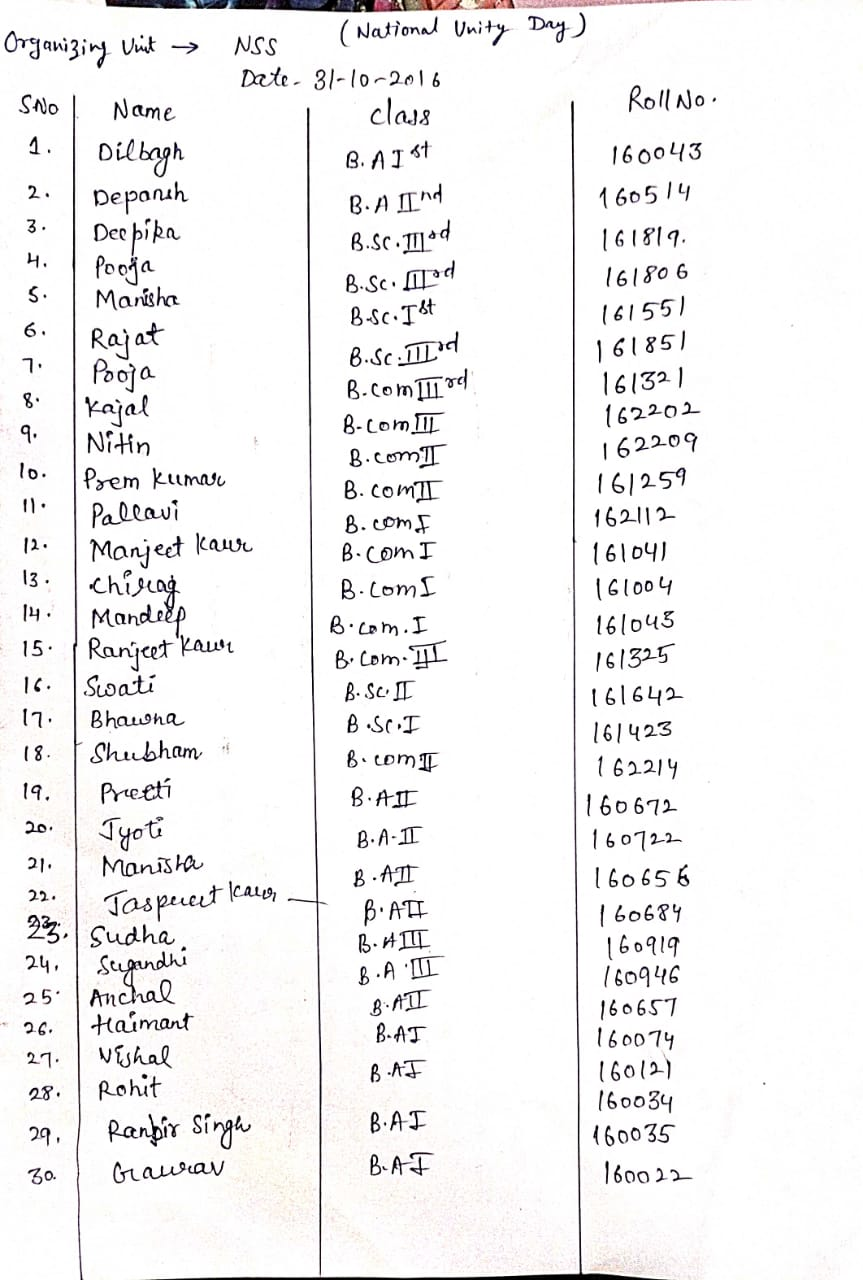 (National Unity Day)
Organizing Unit → NSS
Date- 31-10-2016
SNo Name Class Roll No.
1. Dilbagh B.A Ist 160043
2. Deparsh B.A IInd 160514
3. Deepika B.Sc.IIIrd 161819.
4. Pooja B.Sc.IIIrd 161806
5. Manisha B.Sc.Ist 161551
6. Rajat B.Sc.IIIrd 161851
7. Pooja B.Com IIIrd 161321
8. Kajal B-Com III 162202
9. Nitin B.com II 162209
10. Prem Kumar B.com II 161259
11. Pallavi B.com I 162112
12. Manjeet Kaur B.Com I 161041
13. Chirag B.Com I 161004
14. Mandeep B.com.I 161043
15. Ranjeet Kaur B.Com.III 161325
16. Swati B.Sc.II 161642
17. Bhawna B.Sc.I 161423
18. Shubham B.com II 162214
19. Preeti B.A II 160672
20. Jyoti B.A-II 160722
21. Manisha B.A II 160656
22. Jaspreet Kaur — B.A II 160684
23. Sudha B.A III 160919
24. Sugandhi B.A III 160946
25. Anchal B.A II 160657
26. Haimant B.A I 160074
27. Vishal B.A I 160121
28. Rohit 160034
29. Ranbir Singh B.A I 160035
30. Gaurav B.A I 160022